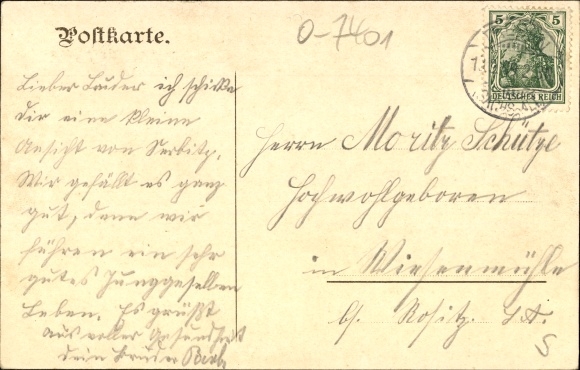 Postkarte.
0-7401
5 5
DEUTSCHES REICH
Lieber Bruder ich schicke
dir eine kleine
Ansicht von Serbitz.
Wir gefällt es ganz
gut, denn wir
führen ein sehr
gutes Junggesellen
Leben. Es grüßt
aus voller Gesundheit
dein Bruder
Herrn Moritz Schütze
Hochwohlgeboren
in Wiesenmühle
b. Rositz. S.A.
S